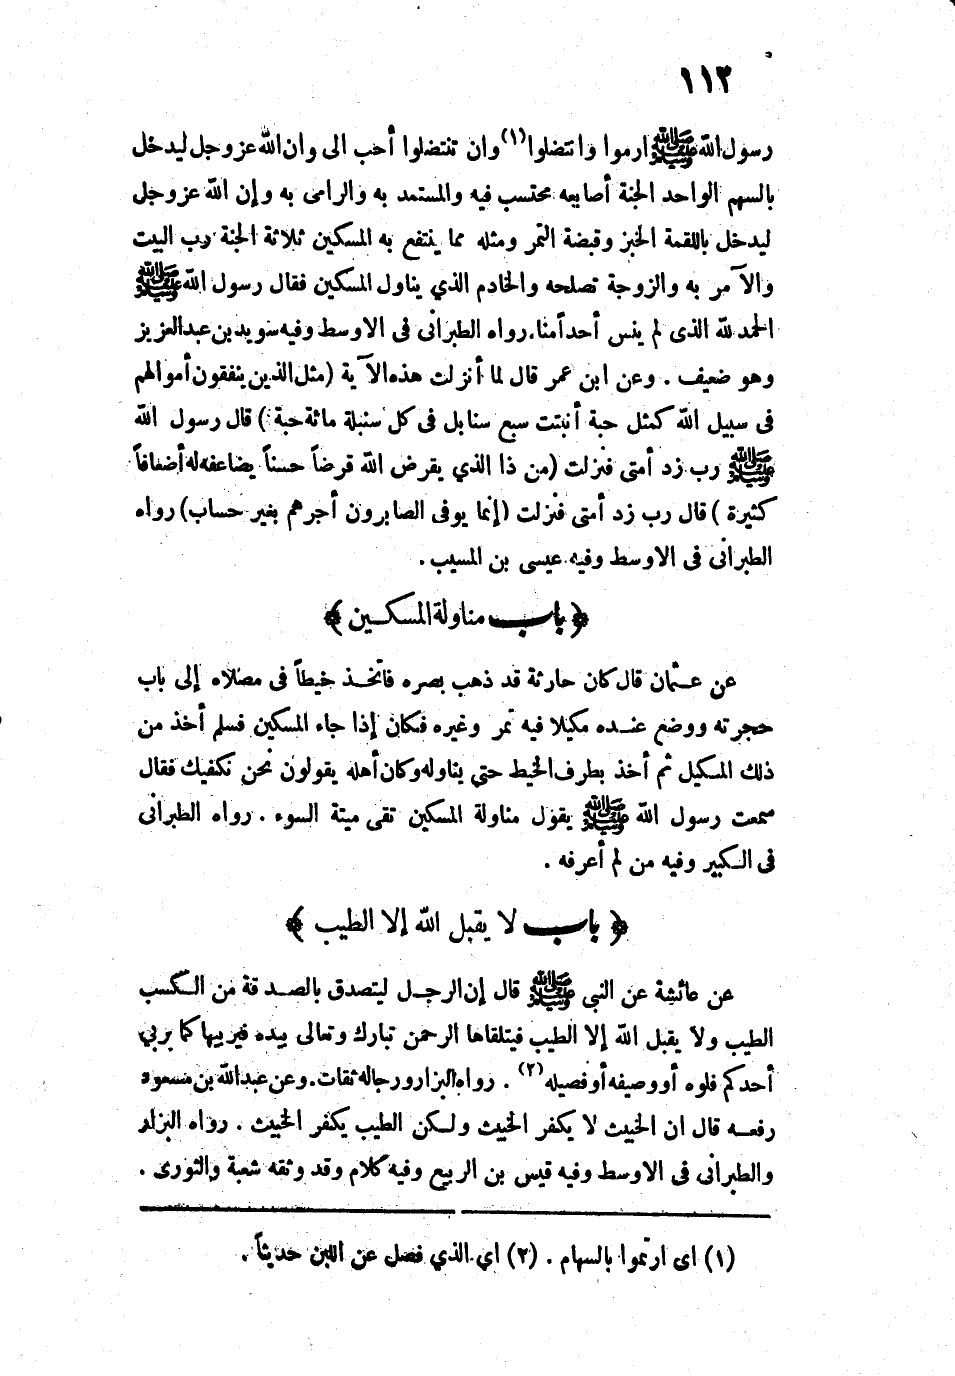 ١١٢
رسول الله ﷺ ارموا وانتضلوا (١) وان تنتضلوا أحب الى وان الله عزوجل ليدخل
بالسهم الواحد الجنة أصابعه محتسب فيه والمستمد به والرامى به وإن الله عز وجل
ليدخل باللقمة الخبز وقبضة التمر ومثله مما ينتفع به المسكين ثلاثة الجنة رب البيت
والآمر به والزوجة تصلحه والخادم الذي يناول المسكين فقال رسول الله ﷺ
الحمد لله الذى لم ينس أحداً منا. رواه الطبرانى فى الاوسط وفيه سويد بن عبد العزيز
وهو ضعيف . وعن ابن عمر قال لما أنزلت هذه الآية (مثل الذين ينفقون أموالهم
فى سبيل الله كمثل حبة أنبتت سبع سنابل فى كل سنبلة مائة حبة ) قال رسول الله
ﷺ رب زد أمتى فنزلت (من ذا الذي يقرض الله قرضاً حسناً يضاعفه له أضعافاً
كثيرة ) قال رب زد أمتى فنزلت (إنما يوفى الصابرون أجرهم بغير حساب) رواه
الطبرانى فى الاوسط وفيه عيسى بن المسيب .
﴿ باب مناولة المسكين ﴾
عن عثمان قال كان حارثة قد ذهب بصره فاتخذ خيطاً فى مصلاه إلى باب
حجرته ووضع عنده مكيلا فيه تمر وغيره فكان إذا جاء المسكين فسلم أخذ من
ذلك المكيل ثم أخذ بطرف الخيط حتي يناوله وكان أهله يقولون نحن نكفيك فقال
سمعت رسول الله ﷺ يقول مناولة المسكين تقى ميتة السوء . رواه الطبرانى
فى الكبير وفيه من لم أعرفه .
﴿ باب لا يقبل الله إلا الطيب ﴾
عن عائشة عن النبي ﷺ قال إن الرجل ليتصدق بالصدقة من الكسب
الطيب ولا يقبل الله إلا الطيب فيتلقاها الرحمن تبارك وتعالى بيده فيربيها كما يربي
أحدكم فلوه أو وصيفه أو فصيله (٢) . رواه البزار ورجاله ثقات. وعن عبد الله بن مسعود
رفعه قال ان الخبيث لا يكفر الخبيث ولكن الطيب يكفر الخبيث . رواه البزار
والطبرانى فى الاوسط وفيه قيس بن الربيع وفيه كلام وقد وثقه شعبة والثورى .
(١) اى ارتموا بالسهام . (٢) اي الذي فصل عن اللبن حديثاً .